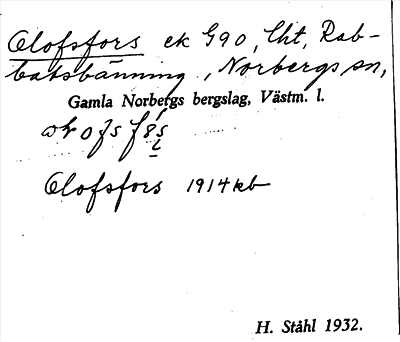 Olofsfors ek G90, Cht, Rab-
batsbänning, Norbergs sn,
Gamla Norbergs bergslag, Västm. l.
Olofsfors 1914 kb
H. Ståhl 1932.